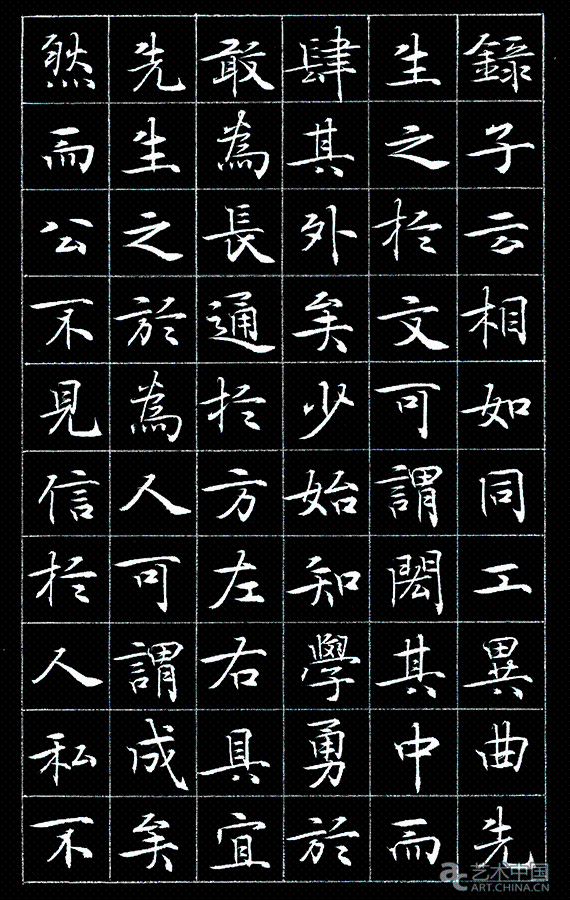 錄子云相如同工異曲先
生之於文可謂閎其中而
肆其外矣少始知學勇於
敢為長通於方左右具宜
先生之於為人可謂成矣
然而公不見信於人私不
艺术中国
ART.CHINA.CN